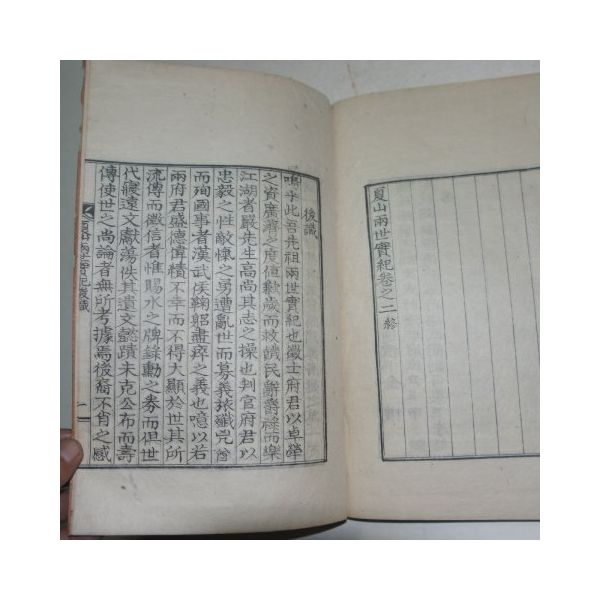 夏山兩世實紀卷之二 終
後識
嗚乎此吾先祖兩世實紀也徵士府君以卓犖
之資廣濟之度値歉歲而救饑民辭爵祿而樂
江湖者嚴先生高尚其志之操也判官府君以
忠毅之性敵愾之勇遭亂世而募義旅殲兇酋
而殉國事者漢武侯鞠躬盡瘁之義也噫以若
兩府君盛德偉積不幸而不得大顯於世其所
流傳而徵信者惟賜水之牌錄勳之券而但世
代寢遠文獻蕩佚其遺文懿蹟未克公布而壽
傳使世之尚論者無所考據焉後裔不肖之感
夏山兩世實紀後識
一